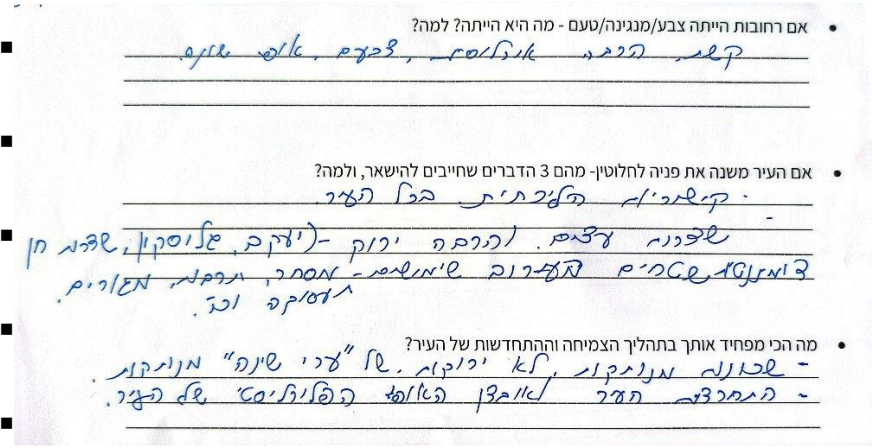 אם רחובות הייתה צבע/מנגינה/טעם - מה היא הייתה? למה?
קשת, הרבה אוכלוסיות, צבעים, אופי שונה.
אם העיר משנה את פניה לחלוטין- מהם 3 הדברים שחייבים להישאר, ולמה?
- קישוריות הליכתית בכל העיר.
-
שדרות עצים, והרבה ירוק -(יעקב, גלוסקין, שדרות חן
דומיננטית, שטחים מעורב שימושים - מסחר, תרבות, מגורים,
תעסוקה וכו'.
מה הכי מפחיד אותך בתהליך הצמיחה וההתחדשות של העיר?
- שכונות מנותקות, לא ירוקות, של "ערי שינה" מנותקות.
- התחרדות העיר ואובדן האופי הפלורליסטי של העיר.